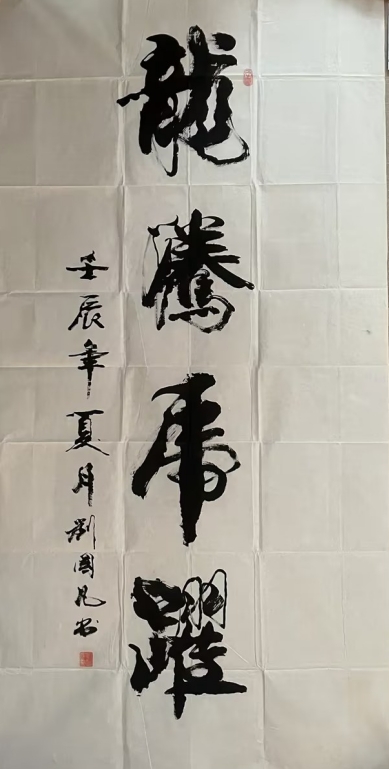 龍騰虎躍
壬辰年夏月劉國凡书